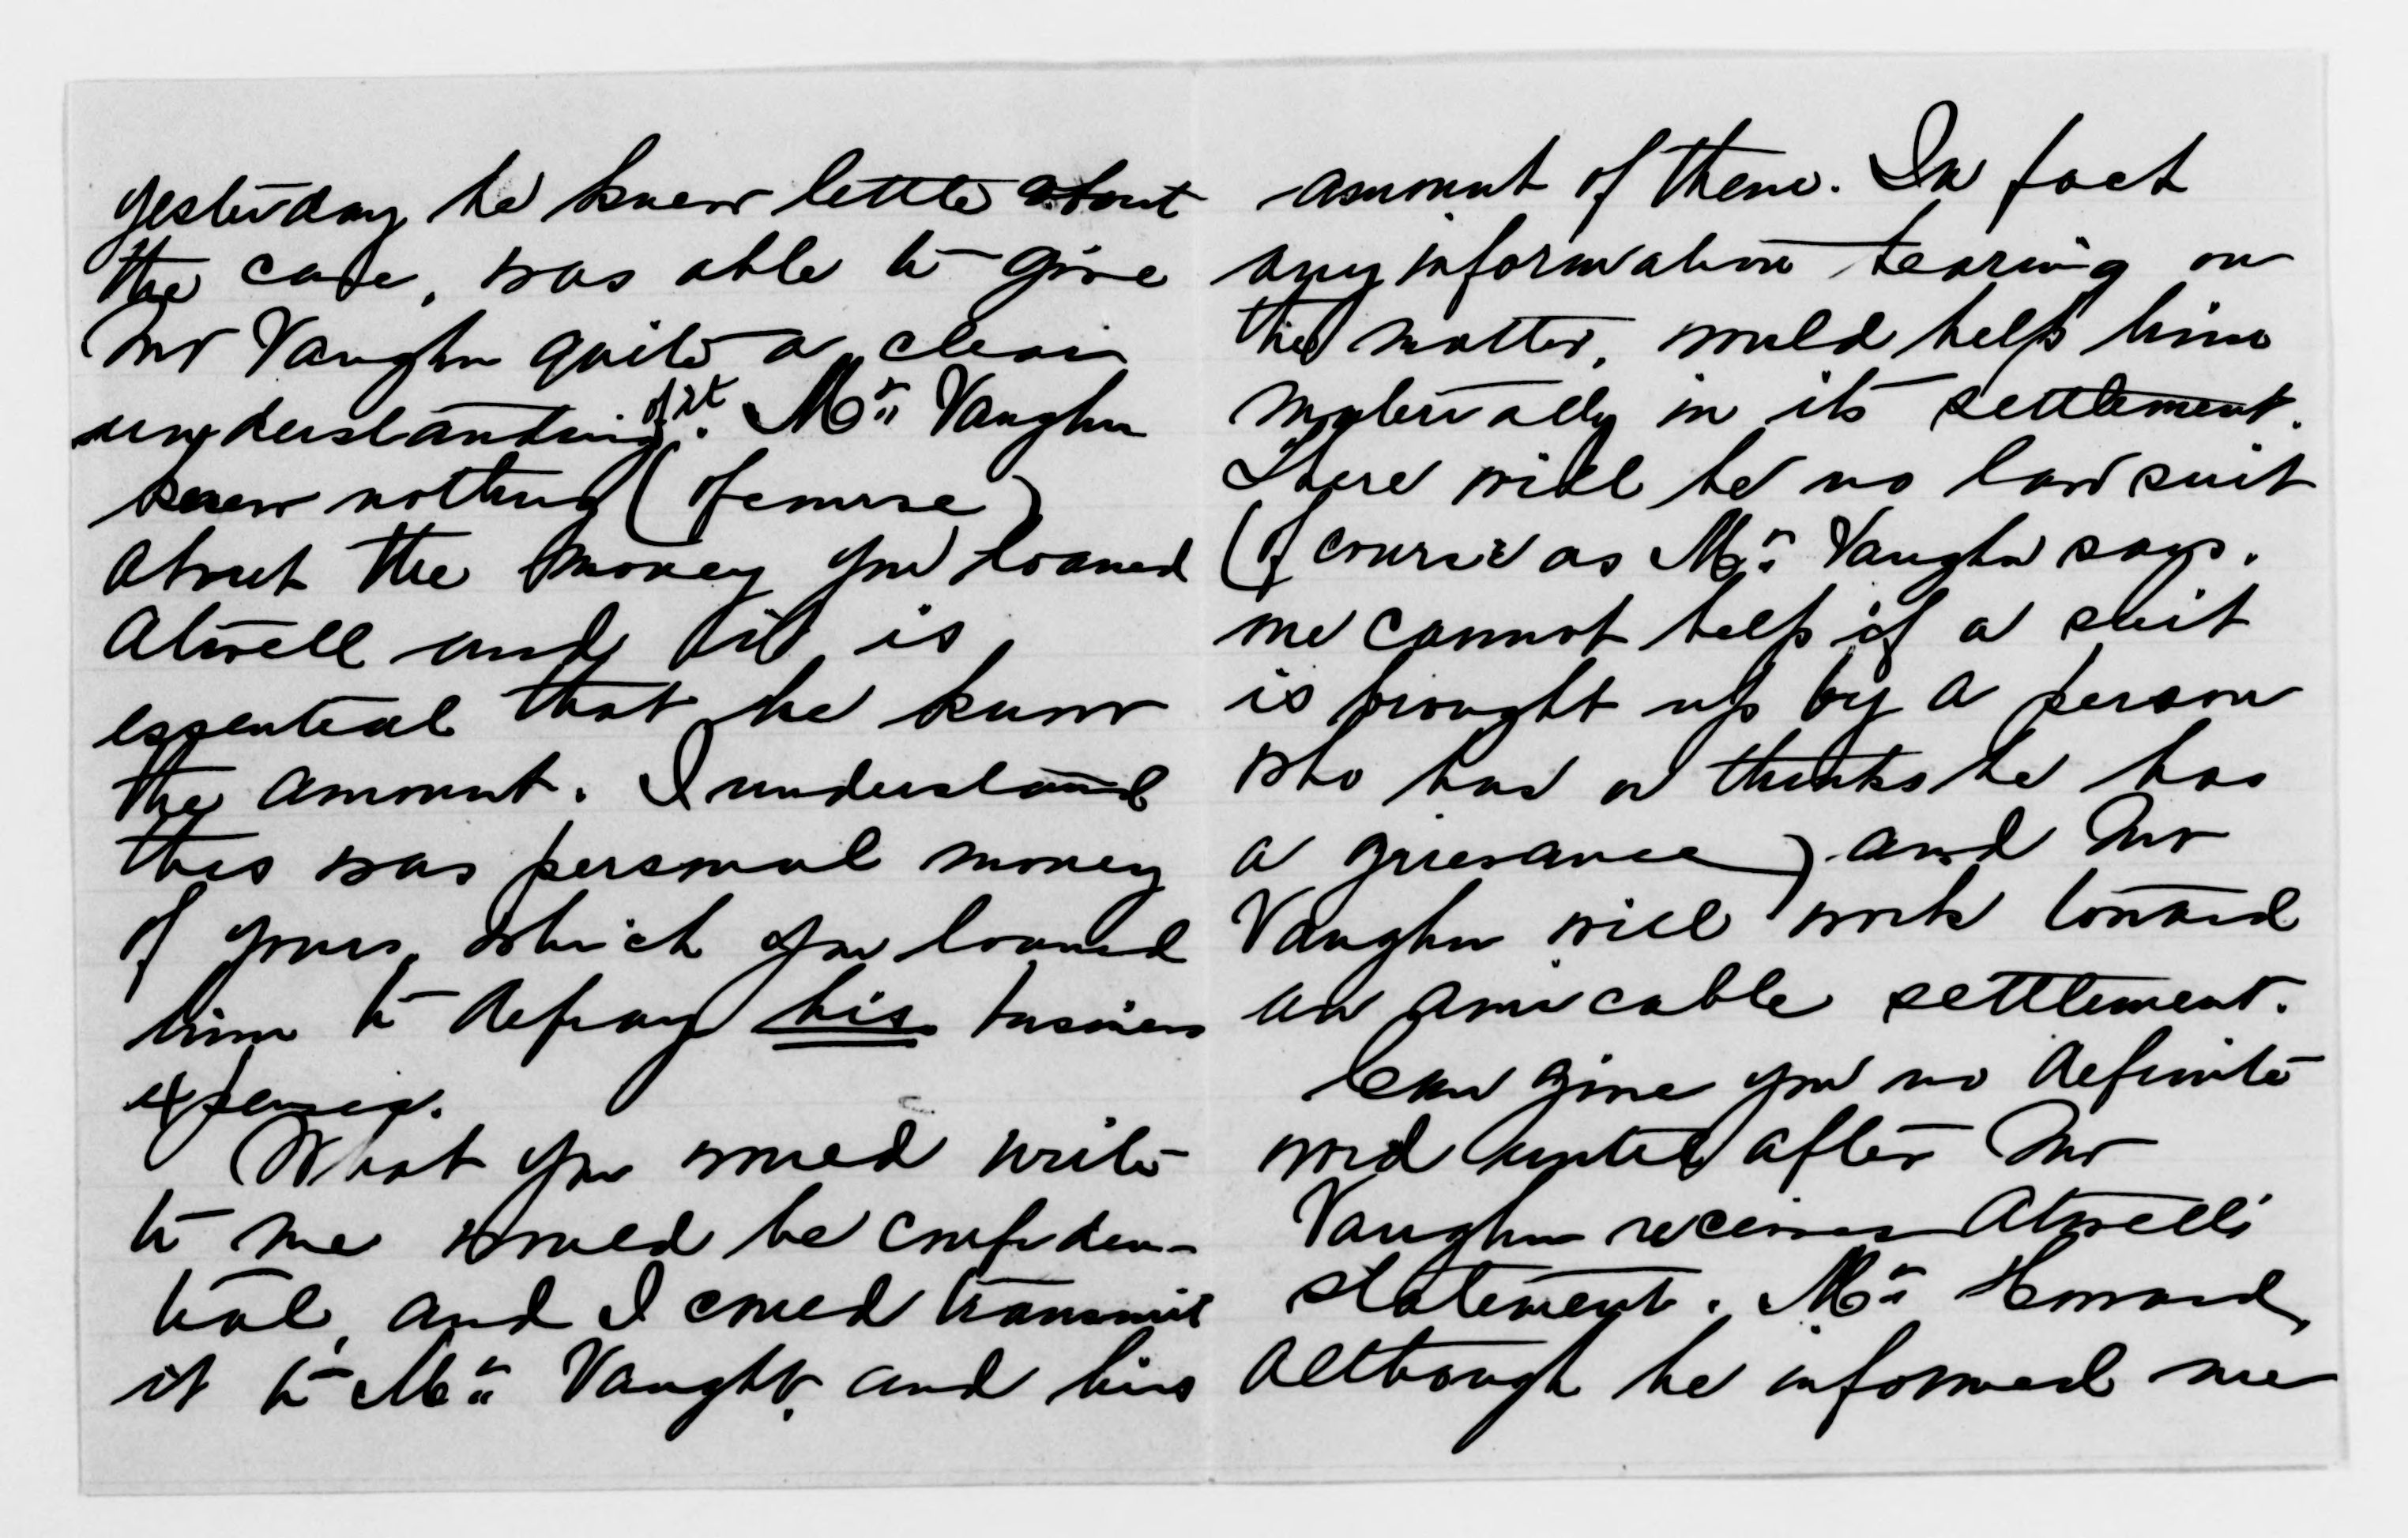 yesterday he knew little about
the case, was able to give
Mr Vaughn quite a clear
understanding of it. Mr. Vaughn
knew nothing (of course)
about the money you loaned
Atwell and it is
essential that he know
the amount. I understand
this was personal money
of yours, which you loaned
him to defray his business
expenses.
What you would write
to me would be confiden-
tial, and I could transmit
it to Mr. Vaughn, and his
amount of them. In fact
any information bearing on
the matter, would help him
materially in its settlement.
There will be no law suit
(of course as Mr. Vaughn says.
we cannot help if a suit
is brought up by a person
who has or thinks he has
a grievance) and Mr
Vaughn will work toward
an amicable settlement.
Can give you no definite
word until after Mr
Vaughn receives Atwell's
statement. Mr. Howard,
although he informed me